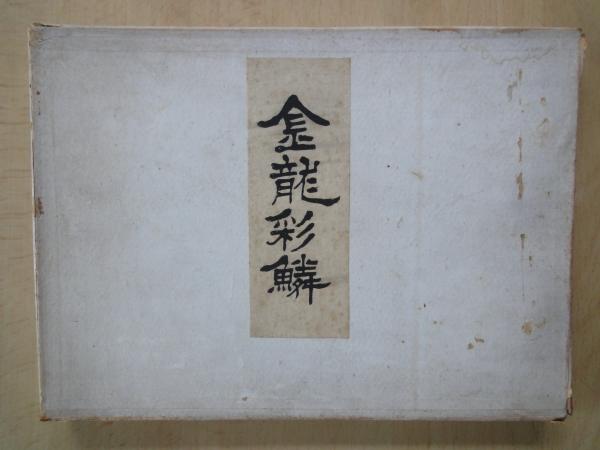 金龍彩鱗